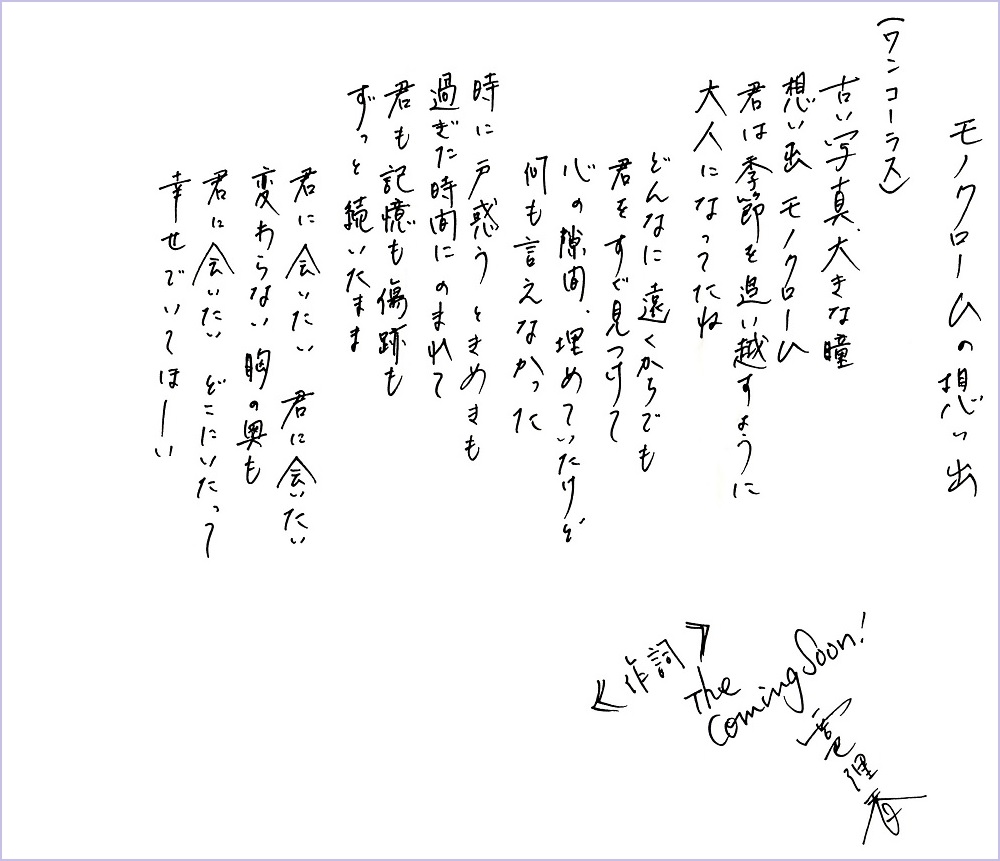 モノクロームの想い出
(ワンコーラス)
古い写真、大きな瞳
想い出 モノクローム
君は季節を追い越すように
大人になってたね
どんなに遠くからでも
君をすぐ見つけて
心の隙間、埋めていたけど
何も言えなかった
時に戸惑う ときめきも
過ぎた時間にのまれて
君も記憶も傷跡も
ずっと続いたまま
君に会いたい 君に会いたい
変わらない胸の奥も
君に会いたい どこにいたって
幸せでいてほしい
《作詞》
The
Coming Soon!
香